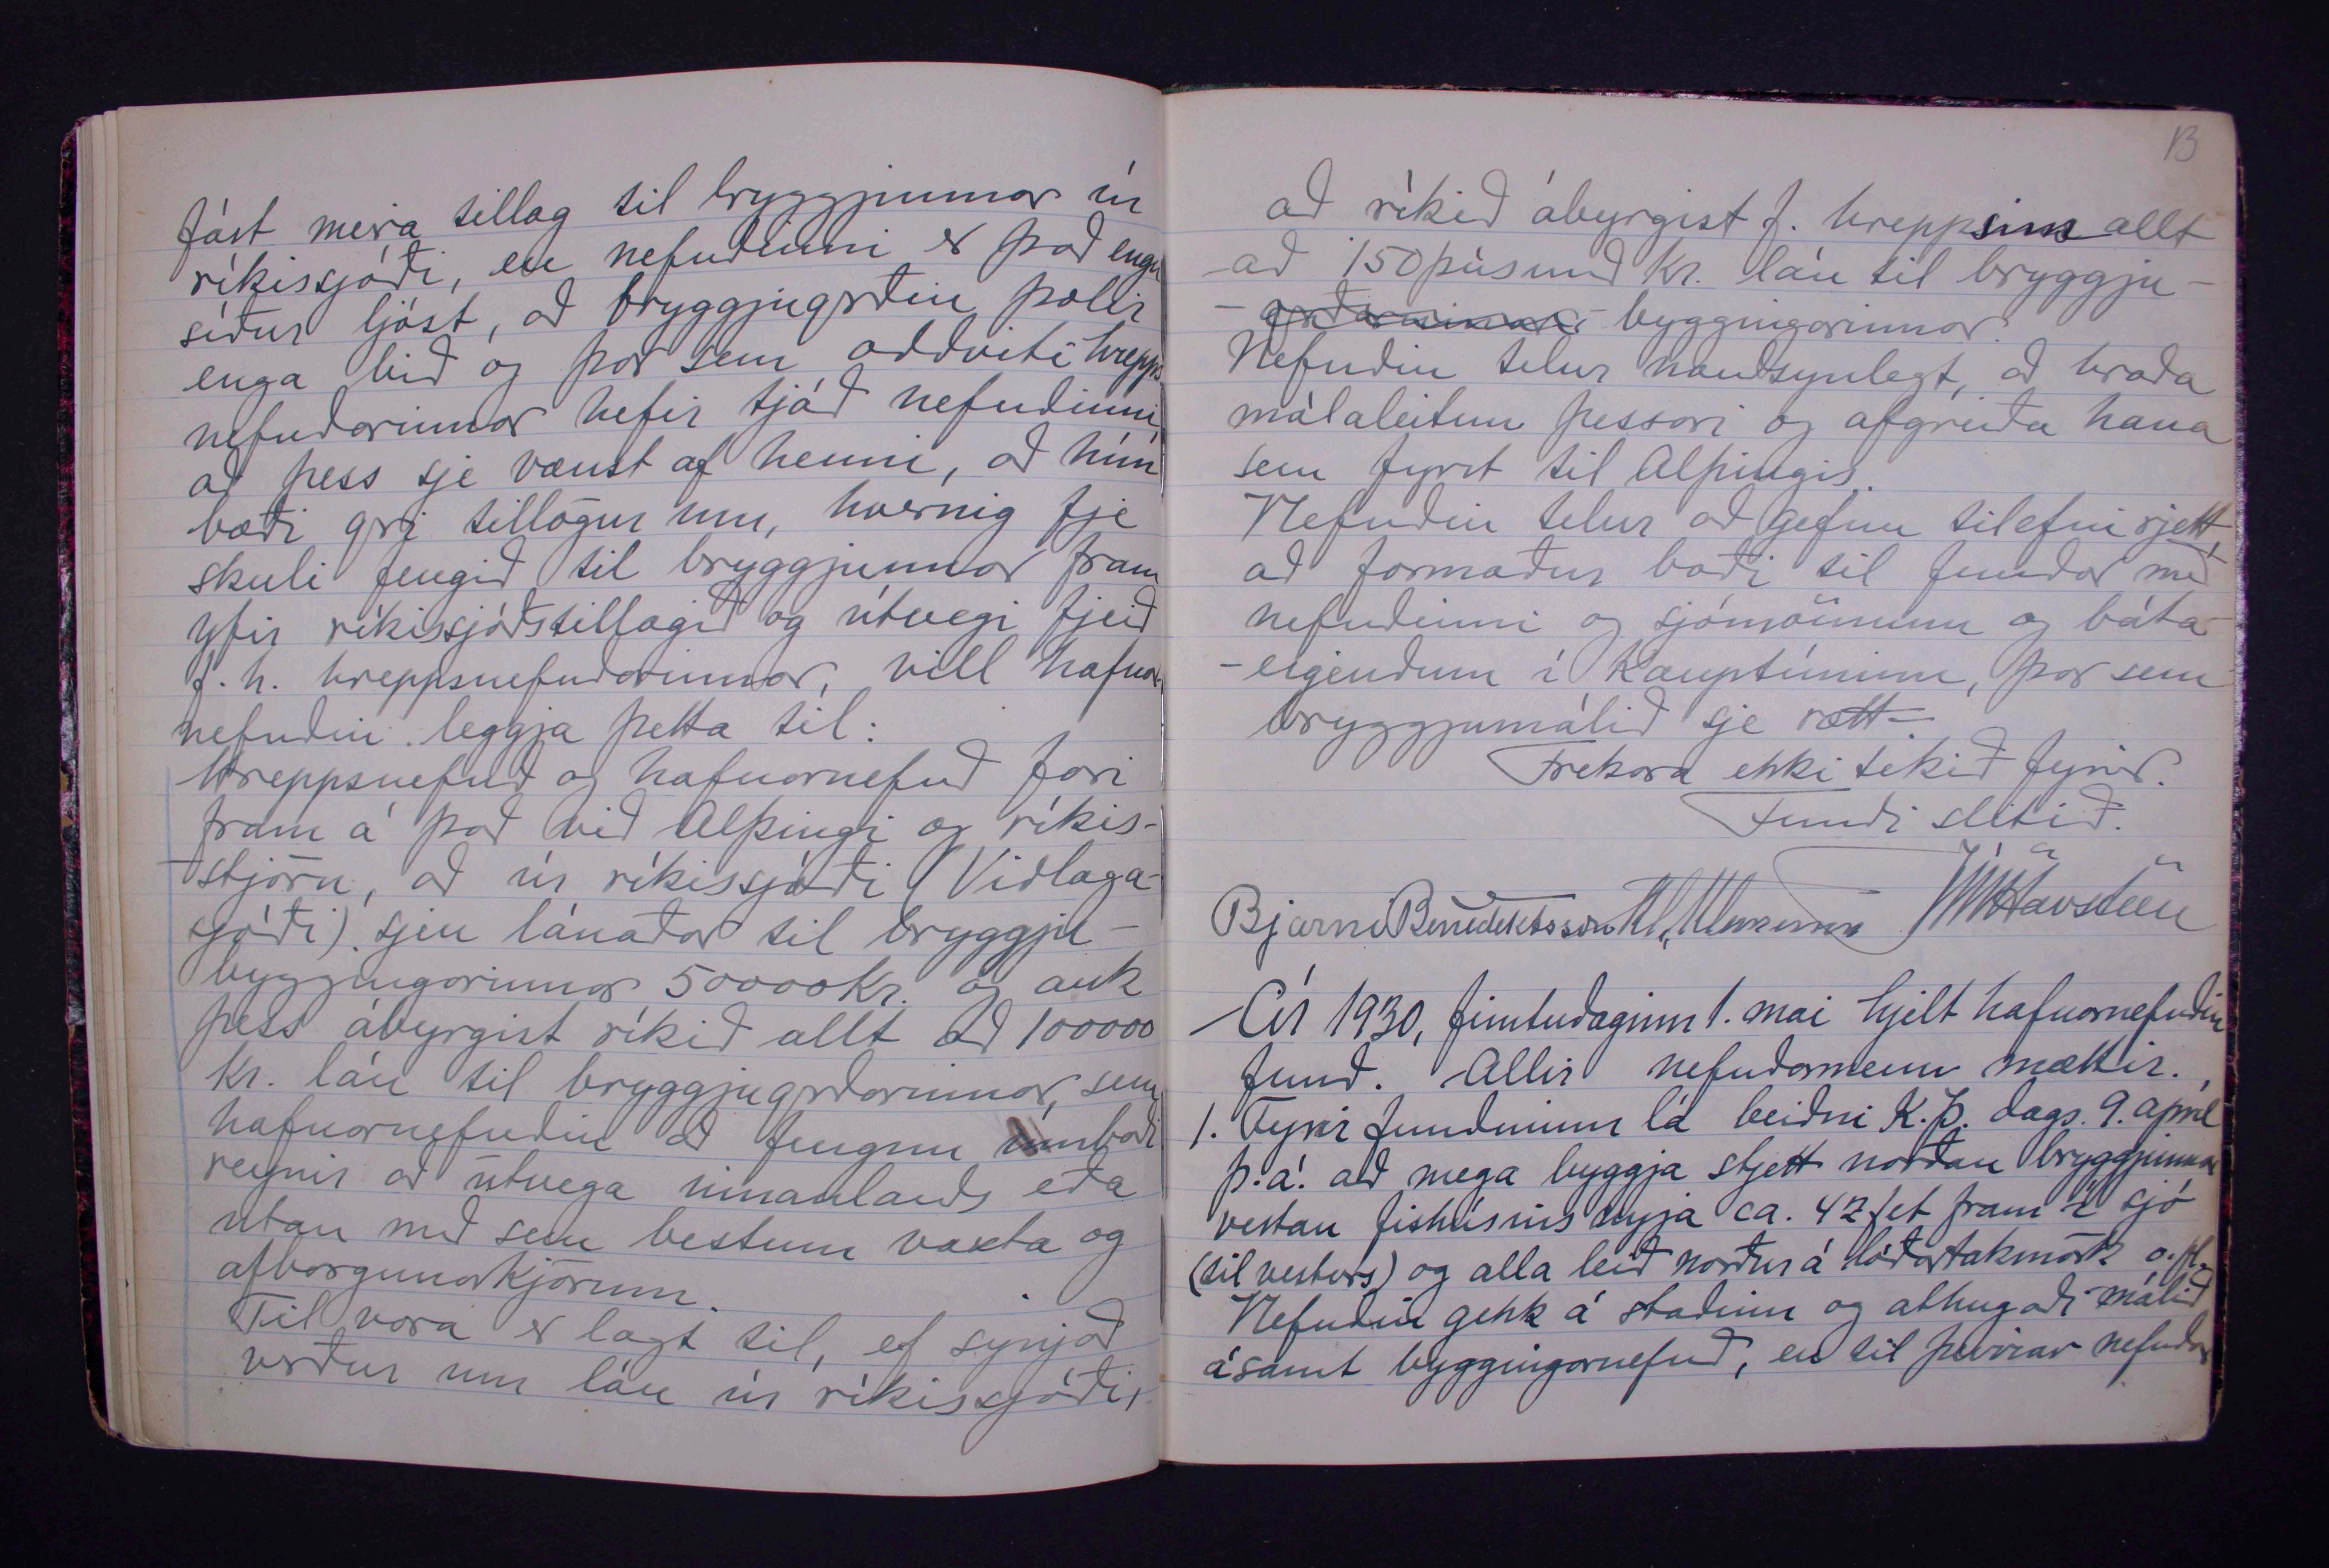 fást meira tillag til bryggjunnar úr
ríkissjóði, en nefndinni er það engu
síður ljóst, að bryggjugrðin þolir
enga bið og þar sem oddviti hrepps
nefndarinnar hefir tjáð nefndinni,
að þess sje vænst af henni, að hún
bæði gri tillögur um, hvernig fje
skuli fengið til bryggjunnar fram
yfir ríkissjóðstillagið og útvegi fjeið
f. h. hreppsnefndarinnar, vill hafnar
nefndin leggja þetta til:
Hreppsnefnd og hafnarnefnd fari
fram á það við Alþingi og ríkis-
stjórn, að úr ríkissjóði (Viðlaga-
sjóði) sjeu lánaðar til bryggju-
byggingarinnar 50000 Kr. og auk
þess ábyrgist ríkið allt að 100000
Kr. lán til bryggjugrðarinnar, sem
hafnarnefndin að fengnu umboði
reynir að útvega innanlands eða
utan með sem bestum vaxta og
afborgunarkjörum.
Til vara er lagt til, ef synjað
verður um lán úr ríkissjóði,
13
að ríkið ábyrgist f. hreppsins allt
að 150 þúsund Kr. lán til bryggju-
- grðarinnar - byggingarinnar.
Nefndin telur nauðsynlegt, að hraða
málaleitun þessari og afgreiða hana
sem fyrst til Alþingis.
Nefndin telur að gefnu tilefni rjett,
að formaður boði til fundar með
nefndinni og sjómönnum og báta-
- eigendum í Kauptúninu, þar sem
bryggjumálið sje rætt -
Frekara ekki tekið fyrir.
Fundi slitið.
Bjarni Benediktsson JHavsteen
Ár 1930, fimtudaginn 1. mai hjelt hafnarnefndin
fund. Allir nefndarmenn mættir.
1. Fyrir fundinum lá beiðni K. Þ. dags. 9. apríl
þ. á. að mega byggja stjett norðan bryggjunnar
vestan fishússins nyja ca. 42 fet fram í sjó
(til vesturs) og alla leið norður á lóðartakmörk o. fl.
Nefndin gekk á staðinn og athugaði málið
ásamt byggingarnefnd, en til þeirrar nefndar